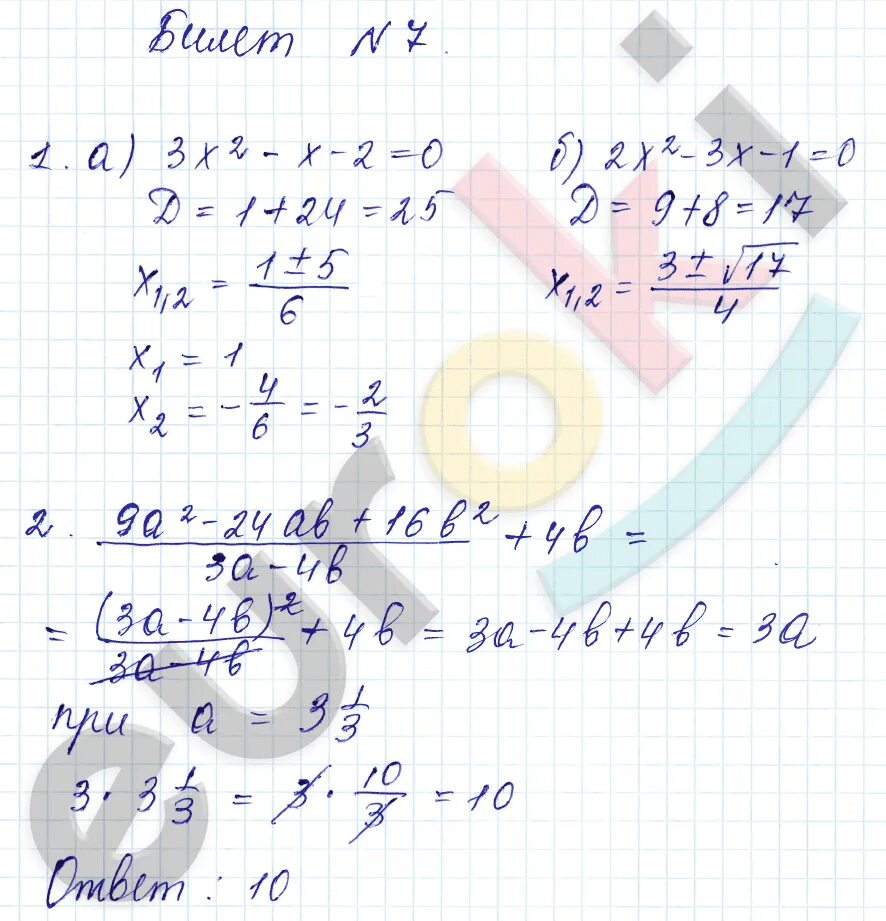 Билет N 7.
1. а) 3x² - x - 2 = 0
D = 1 + 24 = 25
x₁,₂ = (1 ± 5)/6
x₁ = 1
x₂ = -4/6 = -2/3
б) 2x² - 3x - 1 = 0
D = 9 + 8 = 17
x₁,₂ = (3 ± √17)/4
2. (9a² - 24ab + 16b²)/(3a - 4b) + 4b =
= (3a - 4b)²/(3a - 4b) + 4b = 3a - 4b + 4b = 3a
при a = 3 1/3
3 · 3 1/3 = 3 · 10/3 = 10
Ответ: 10
euroki